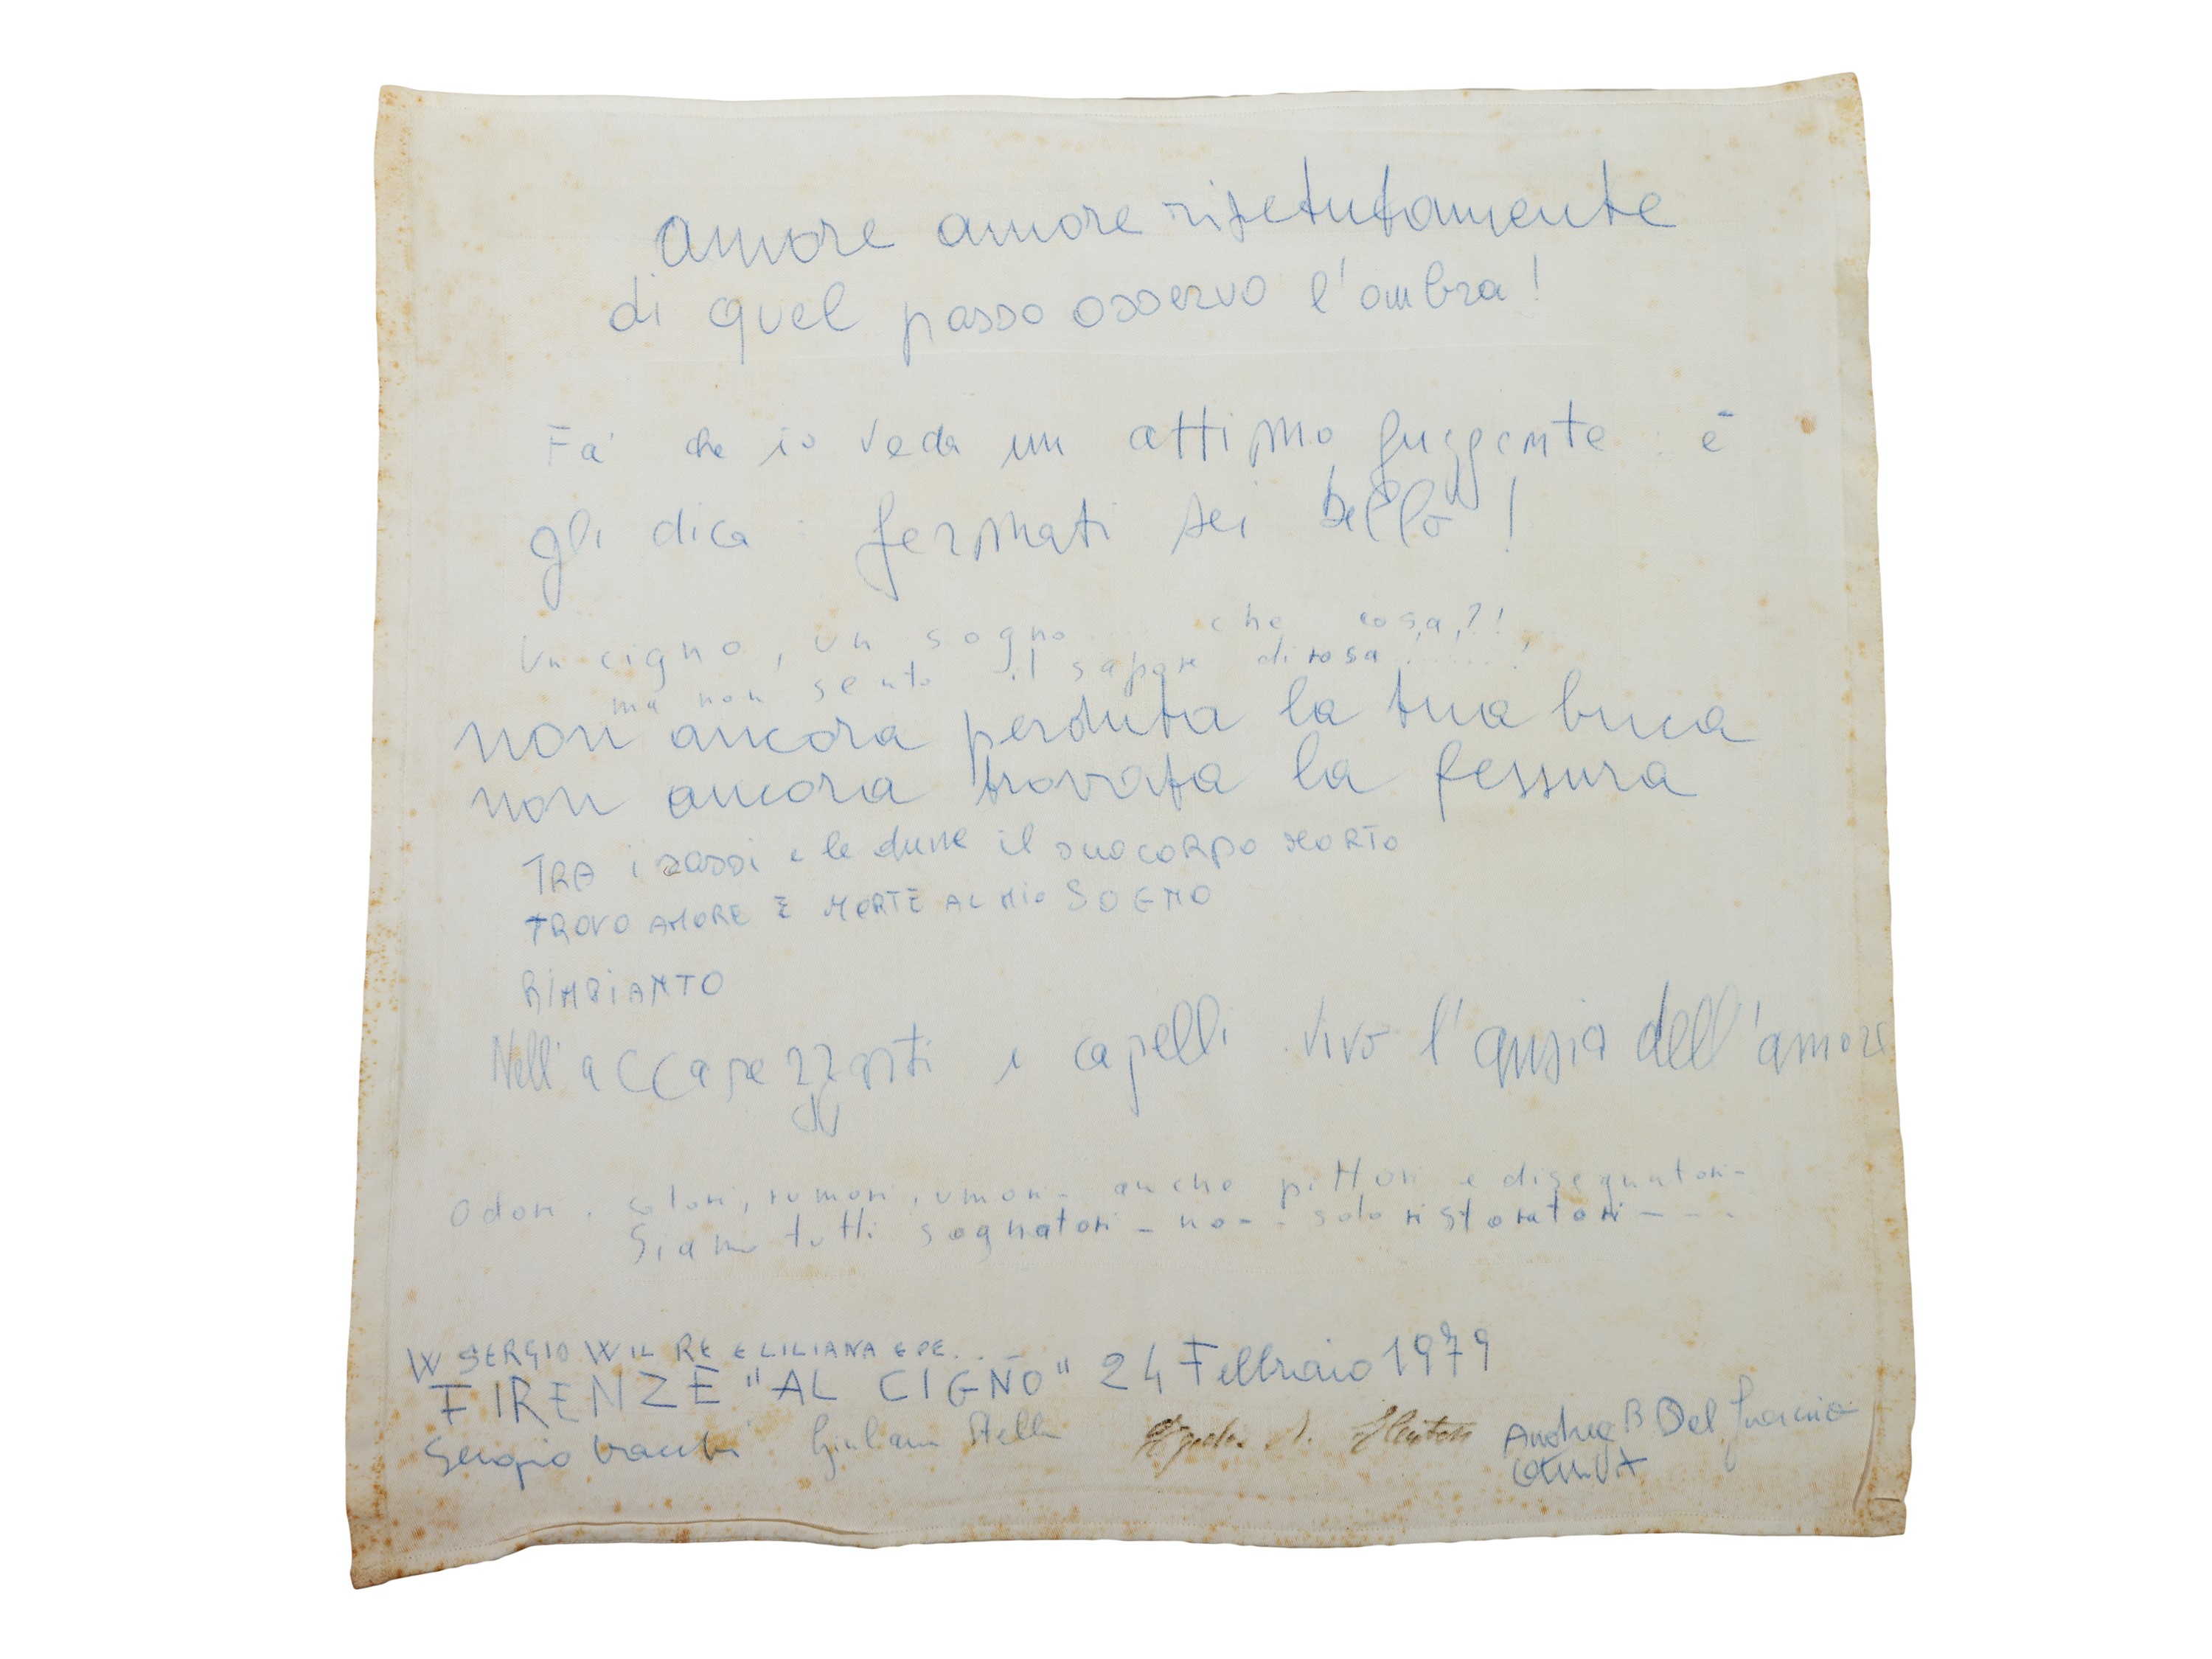 amore amore ripetutamente
di quel passo osservo l'ombra!
Fa' che io veda un attimo fuggente e
gli dica: fermati sei bello!
Un cigno, un sogno.... che cosa,?!
ma non sento il sapore di rosa!......!
non ancora perduta la tua buca
non ancora trovata la fessura
TRA i sassi e le dune il suo CORPO MORTO
TROVO AMORE E MORTE AL MIO SOGNO
RIMPIANTO
Nell'accarezzarti i capelli vivo l'ansia dell'amore
Odori, colori, rumori, umori - anche pittori e disegnatori -
Siamo tutti sognatori - no - - solo ristoratori - - - -
W SERGIO W IL RE E LILIANA E PE...
FIRENZE "AL CIGNO" 24 Febbraio 1979
Sergio Vacchi Giuliana Stella
Andrea B Del Guercio